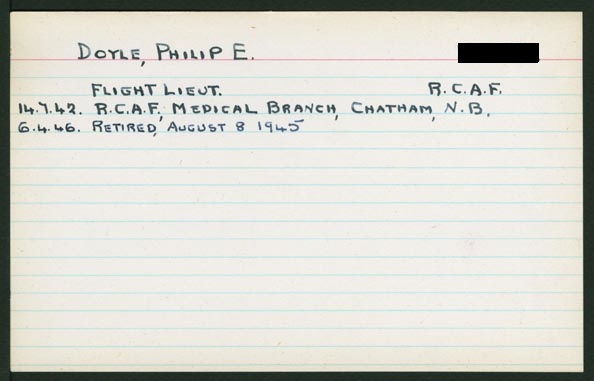 DOYLE, PHILIP E.
FLIGHT LIEUT. R.C.A.F.
14.7.42. R.C.A.F., MEDICAL BRANCH, CHATHAM, N.B.
6.4.46. RETIRED, AUGUST 8 1945